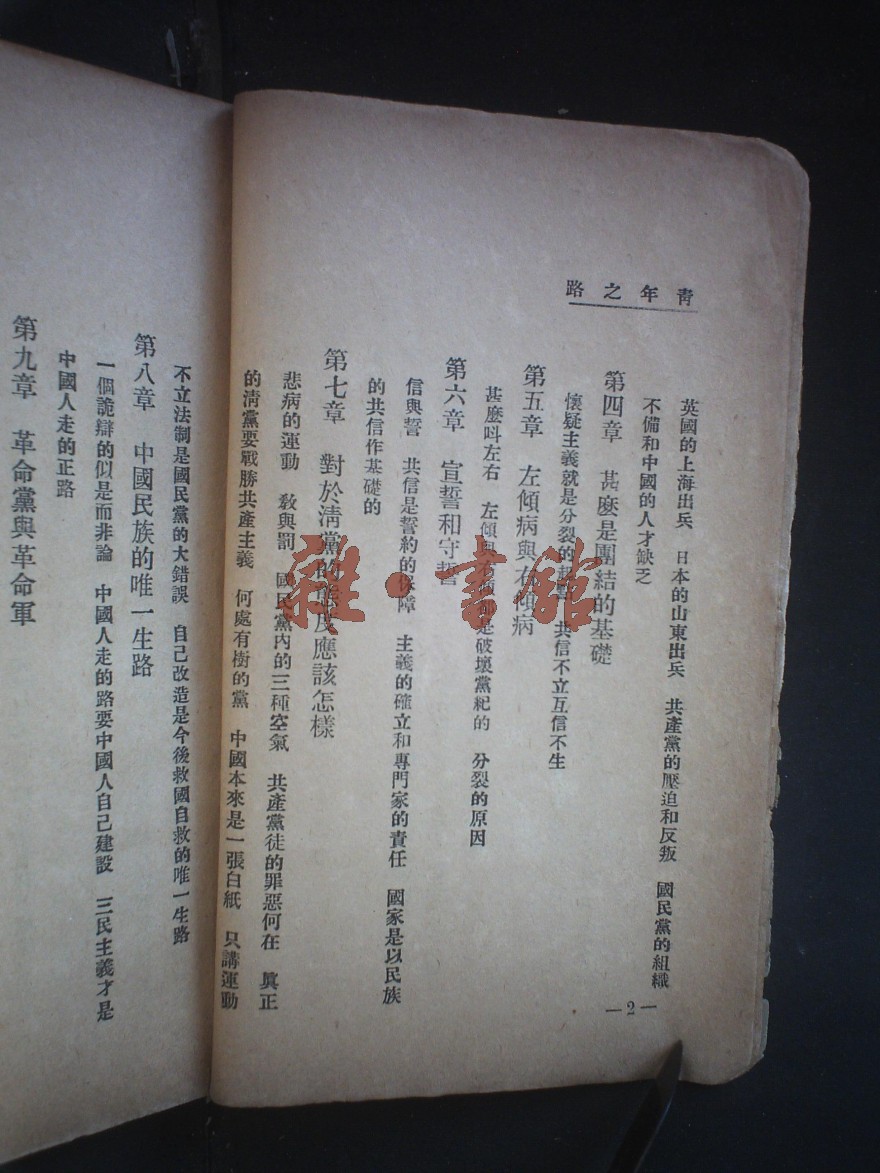 青年之路
英國的上海出兵　日本的山東出兵　共產黨的壓迫和反叛　國民黨的組織
不備和中國的人才缺乏
第四章　甚麼是團結的基礎
懷疑主義就是分裂的　共信不立互信不生
第五章　左傾病與右傾病
甚麼呌左右　左傾與右傾都是破壞黨紀的　分裂的原因
第六章　宣誓和守誓
信與誓　共信是誓約的保障　主義的確立和專門家的責任　國家是以民族
的共信作基礎的
第七章　對於清黨的態度應該怎樣
悲病的運動　敎與罰　國民黨內的三種空氣　共產黨徒的罪惡何在　眞正
的清黨要戰勝共產主義　何處有樹的黨　中國本來是一張白紙　只講運動
— 2 —
不立法制是國民黨的大錯誤　自己改造是今後救國自救的唯一生路
第八章　中國民族的唯一生路
一個詭辯的似是而非論　中國人走的路要中國人自己建設　三民主義才是
中國人走的正路
第九章　革命黨與革命軍
雜·書館